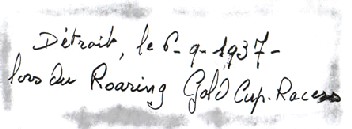 Détroit, le 6-9-1937-
lors du Roaring Gold Cup. Races